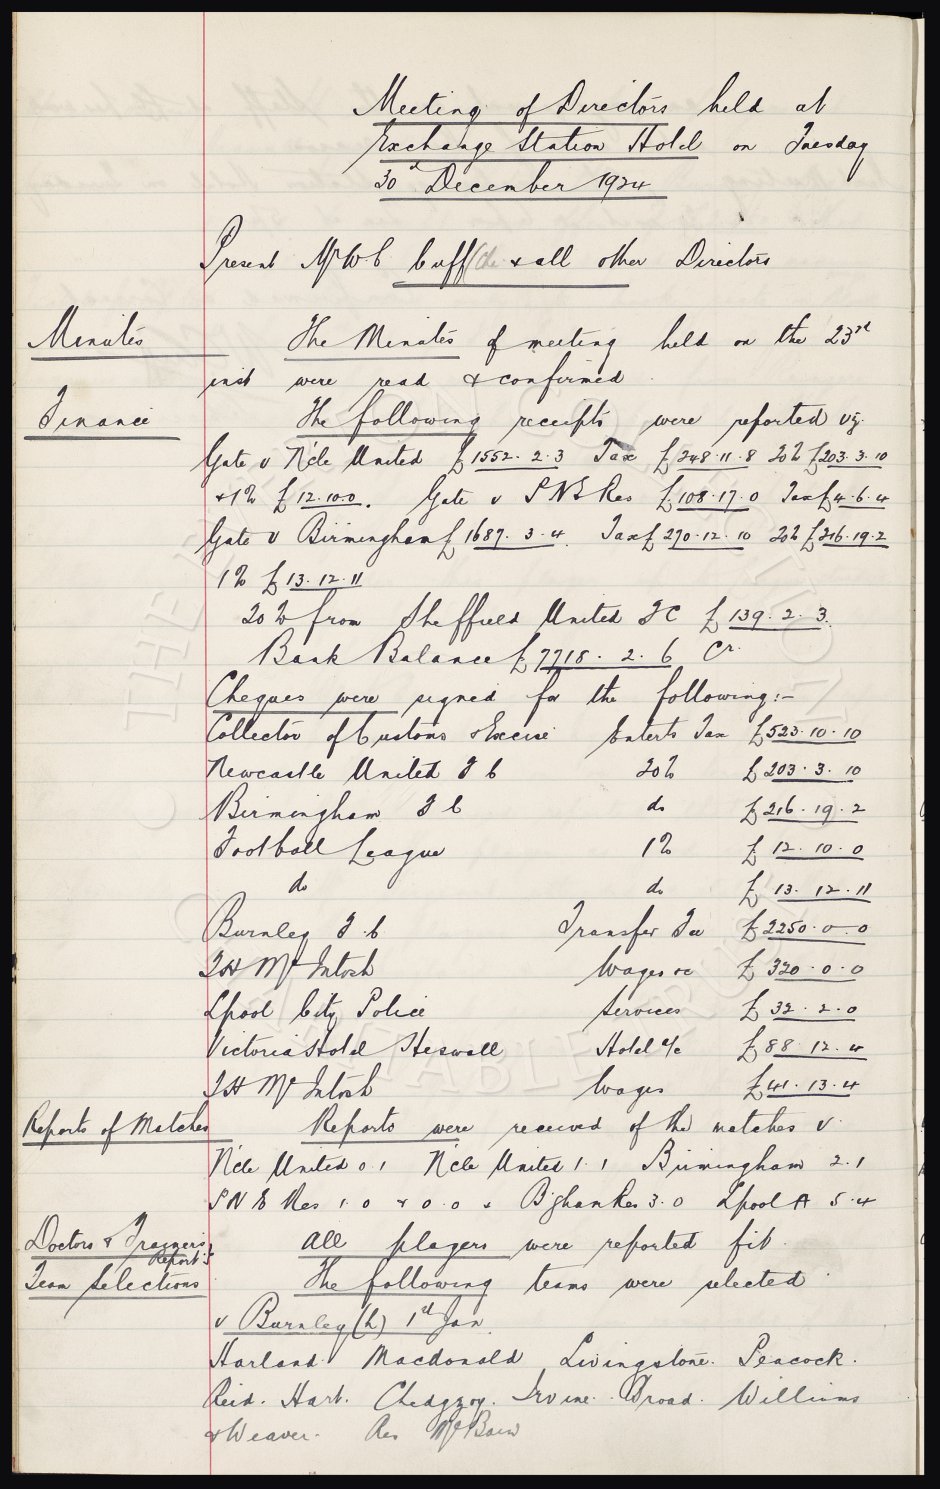 Meeting of Directors held at
Exchange Station Hotel on Tuesday
30th December 1924
Present Mr W.C Cuff (Ch) & all other Directors
Minutes The Minutes of meeting held on the 23rd
inst were read & confirmed
Finance The following receipts were reported viz
Gate v N'cle United £1552.2.3 Tax £248.11.8 20% £203.3.10
& 1% £12.10.0. Gate v SNE Res £108.17.0 Tax £4.6.4
Gate v Birmingham £1687.3.4. Tax £270.12.10 20% £216.19.2
1% £13.12.11
20% from Sheffield United FC £139.2.3.
Bank Balance £7718.2.6 Cr.
Cheques were signed for the following:-
Collector of Customs & Excise Enterts Tax £523.10.10
Newcastle United F C 20% £203.3.10
Birmingham F C do £216.19.2
Football League 1% £12.10.0
do do £13.12.11
Burnley F.C. Transfer Fee £2250.0.0
T H McIntosh Wages &c £320.0.0
Lpool City Police Services £32.2.0
Victoria Hotel Heswall Hotel a/c £88.12.4
T H McIntosh Wages £41.13.4
Reports of Matches Reports were received of the matches v
N'cle United 0.1 N'cle United 1.1 Birmingham 2.1
S N E Res 1.0 & 0.0 & B'gham Res 3.0 Lpool A 5.4
Doctors & Trainers Reports All players were reported fit.
Team Selections The following teams were selected
v Burnley (h) 1st Jan.
Harland. Macdonald. Livingstone. Peacock.
Reid. Hart. Chedgzoy. Irvine. Broad. Williams
& Weaver. Res McBain
THE